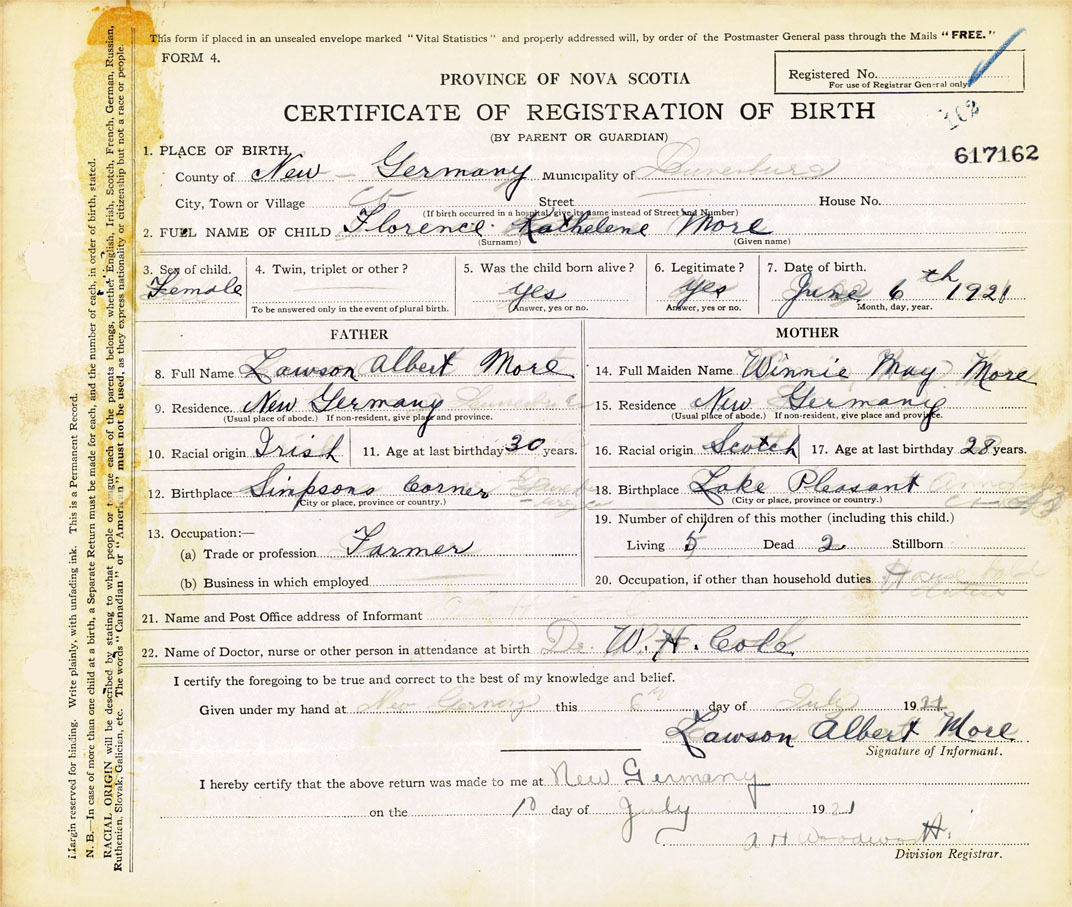 This form if placed in an unsealed envelope marked "Vital Statistics" and properly addressed will, by order of the Postmaster General pass through the Mails "FREE."
FORM 4.
Registered No.
For use of Registrar General only
PROVINCE OF NOVA SCOTIA
CERTIFICATE OF REGISTRATION OF BIRTH
102
(BY PARENT OR GUARDIAN)
617162
1. PLACE OF BIRTH,
County of New Germany Municipality of Lunenburg
City, Town or Village Street House No.
(If birth occurred in a hospital, give its name instead of Street and Number)
2. FULL NAME OF CHILD Florence Kathelene More
(Surname) (Given name)
3. Sex of child. 4. Twin, triplet or other? 5. Was the child born alive? 6. Legitimate? 7. Date of birth.
Female yes yes June 6th 1921
To be answered only in the event of plural birth. Answer, yes or no. Answer, yes or no. Month, day, year.
FATHER
8. Full Name Lawson Albert More
9. Residence. New Germany
(Usual place of abode.) If non-resident, give place and province.
10. Racial origin Irish 11. Age at last birthday 30 years.
12. Birthplace Simpsons Corner
(City or place, province or country.)
13. Occupation:—
(a) Trade or profession Farmer
(b) Business in which employed
MOTHER
14. Full Maiden Name Winnie May More
15. Residence New Germany
(Usual place of abode.) If non-resident, give place and province.
16. Racial origin Scotch 17. Age at last birthday 28 years.
18. Birthplace Lake Pleasant
(City or place, province or country.)
19. Number of children of this mother (including this child.)
Living 5 Dead 2 Stillborn
20. Occupation, if other than household duties
21. Name and Post Office address of Informant
22. Name of Doctor, nurse or other person in attendance at birth Dr. W. H. Cole
I certify the foregoing to be true and correct to the best of my knowledge and belief.
Given under my hand at New Germany this 6th day of July 1921
Lawson Albert More
Signature of Informant.
I hereby certify that the above return was made to me at New Germany
on the 10 day of July 1921
A H
Division Registrar.
Margin reserved for binding. Write plainly, with unfading ink. This is a Permanent Record.
N. B.—In case of more than one child at a birth, a Separate Return must be made for each, and the number of each, in order of birth, stated.
RACIAL ORIGIN will be described by stating to what people or tongue each of the parents belongs, whether English, Irish, Scotch, French, German, Russian,
Ruthenian, Slovak, Galician, etc. The words "Canadian" or "American" must not be used, as they express nationality or citizenship but not a race or people.